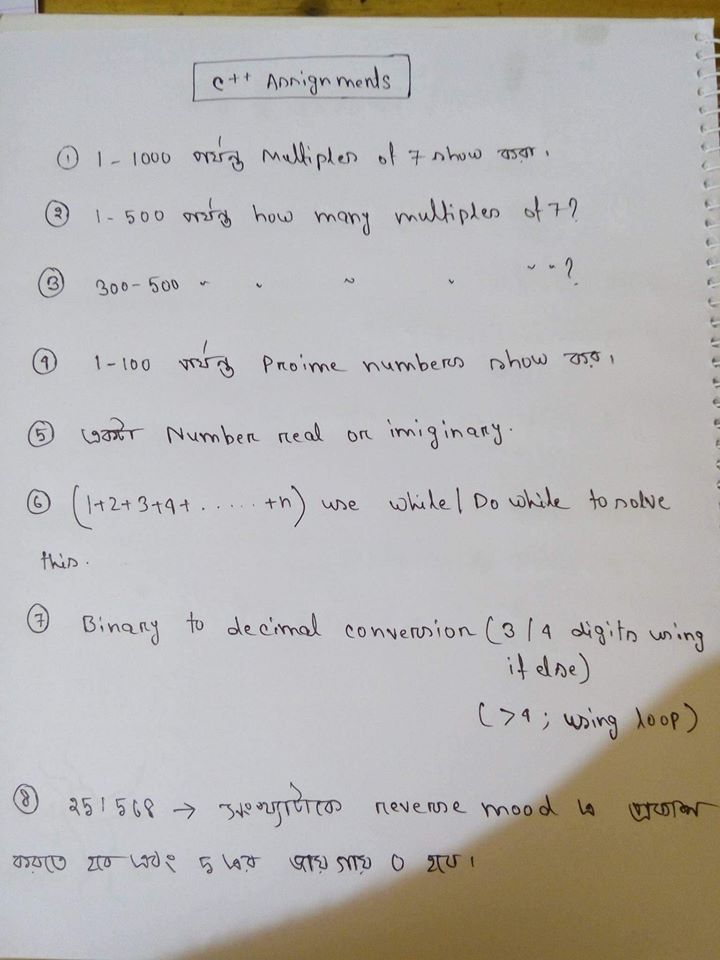 C++ Assignments
① 1-1000 পর্যন্ত Multiples of 7 show করা।
② 1-500 পর্যন্ত how many multiples of 7?
③ 300-500 " " " " " "?
④ 1-100 পর্যন্ত Proime numbers show করা।
⑤ একটা Number real or imiginary.
⑥ (1+2+3+4+......+n) use while/Do while to solve
this.
⑦ Binary to decimal conversion (3/4 digits using
if else)
(>4; using loop)
⑧ 251568 → সংখ্যাটাকে reverse mood এ প্রকাশ
করতে হবে এবং 5 এর জায়গায় 0 হবে।